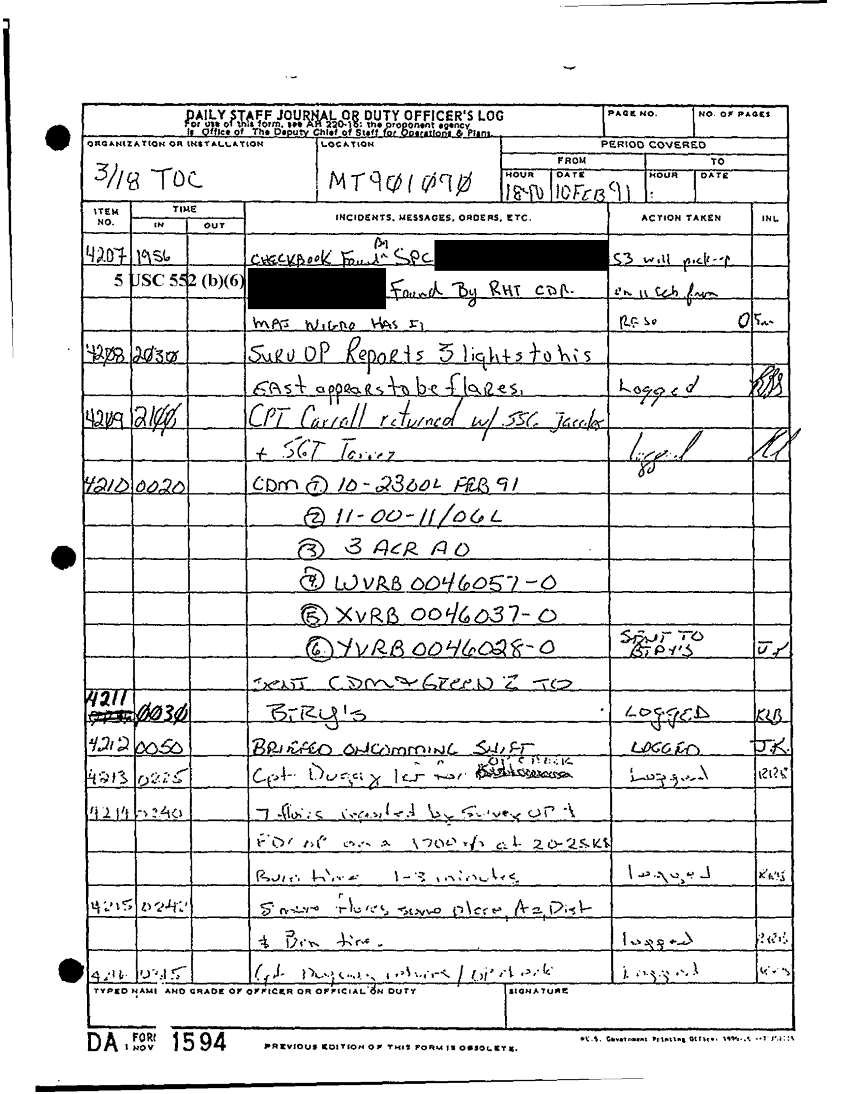 DAILY STAFF JOURNAL OR DUTY OFFICER'S LOG
For use of this form, see AR 220-15; the proponent agency
is Office of The Deputy Chief of Staff for Operations & Plans.
PAGE NO.
NO. OF PAGES
ORGANIZATION OR INSTALLATION
3/18 TOC
LOCATION
MT901090
PERIOD COVERED
FROM
TO
HOUR
DATE
HOUR
DATE
10 FEB 91
ITEM NO.
TIME
IN
OUT
INCIDENTS, MESSAGES, ORDERS, ETC.
ACTION TAKEN
INL
4207 1956 CHECKBOOK Found By SPC S3 will pick-up
5 USC 552 (b)(6) Found By RHT CDR. on 11 Feb from
MAJ NIGRO HAS IT
4208 2030 Surv OP Reports 3 lights to his
EAST appears to be flares. Logged
4209 2100 CPT Carroll returned w/ SSG Jacobs
+ SGT Torrez logged
4210 0020 CDM ① 10-2300L FEB 91
② 11-00-11/06L
③ 3 ACR AO
④ WVRB 0046057-0
⑤ XVRB 0046037-0
⑥ YVRB 0046028-0 SENT TO BTRY'S
SENT CDM & GREEN 2 TO
4211 0030 BTRY'S LOGGED KLB
4212 0050 BRIEFED ONCOMMING SHIFT LOGGED J.K.
4213 0225 Cpt Duggy for Logged
4214 0240 7 flares reported by Survey OP &
FDC OP on a at 20-25K
Burn time 1-3 minutes logged
4215 0242 5 more flares same place, Az, Dist
& Burn time. logged
Cpt returns / OP check Logged
TYPED NAME AND GRADE OF OFFICER OR OFFICIAL ON DUTY
SIGNATURE
DA FORM 1 NOV 1594
PREVIOUS EDITION OF THIS FORM IS OBSOLETE.
U.S. Government Printing Office: